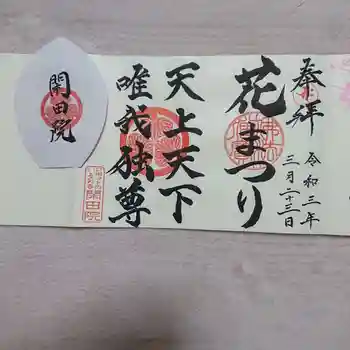 奉拝
令和三年
三月二十三日
花まつり
天上天下
唯我独尊
閑田院
閑田院